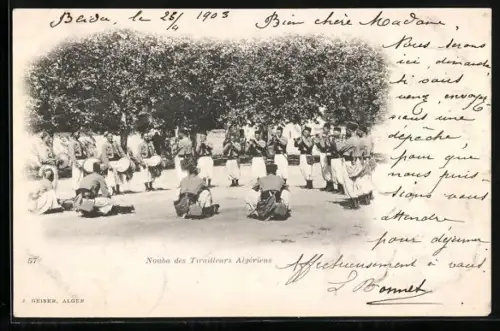 Blida, le 25/4 1903
Bien chère Madame,
Nous serons
ici, dimanche
si vous
venez, envoyez
nous une
dépêche,
pour que
nous puis-
sions vous
attendre
pour déjeuner
Affectueusement à vous.
L Bonnet
57
Nouba des Tirailleurs Algériens
J. GEISER, ALGER